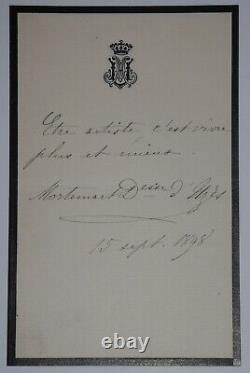 Etre artiste, c'est vivre
plus et mieux.
Mortemart Dsse d'Uzès
15 sept. 1898
ebay.com